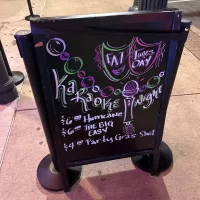 FAT Tues
DAY
Karaoke Night
$6 Hurricane
$6 THE BIG
EASY
$4 Party Gras Shot